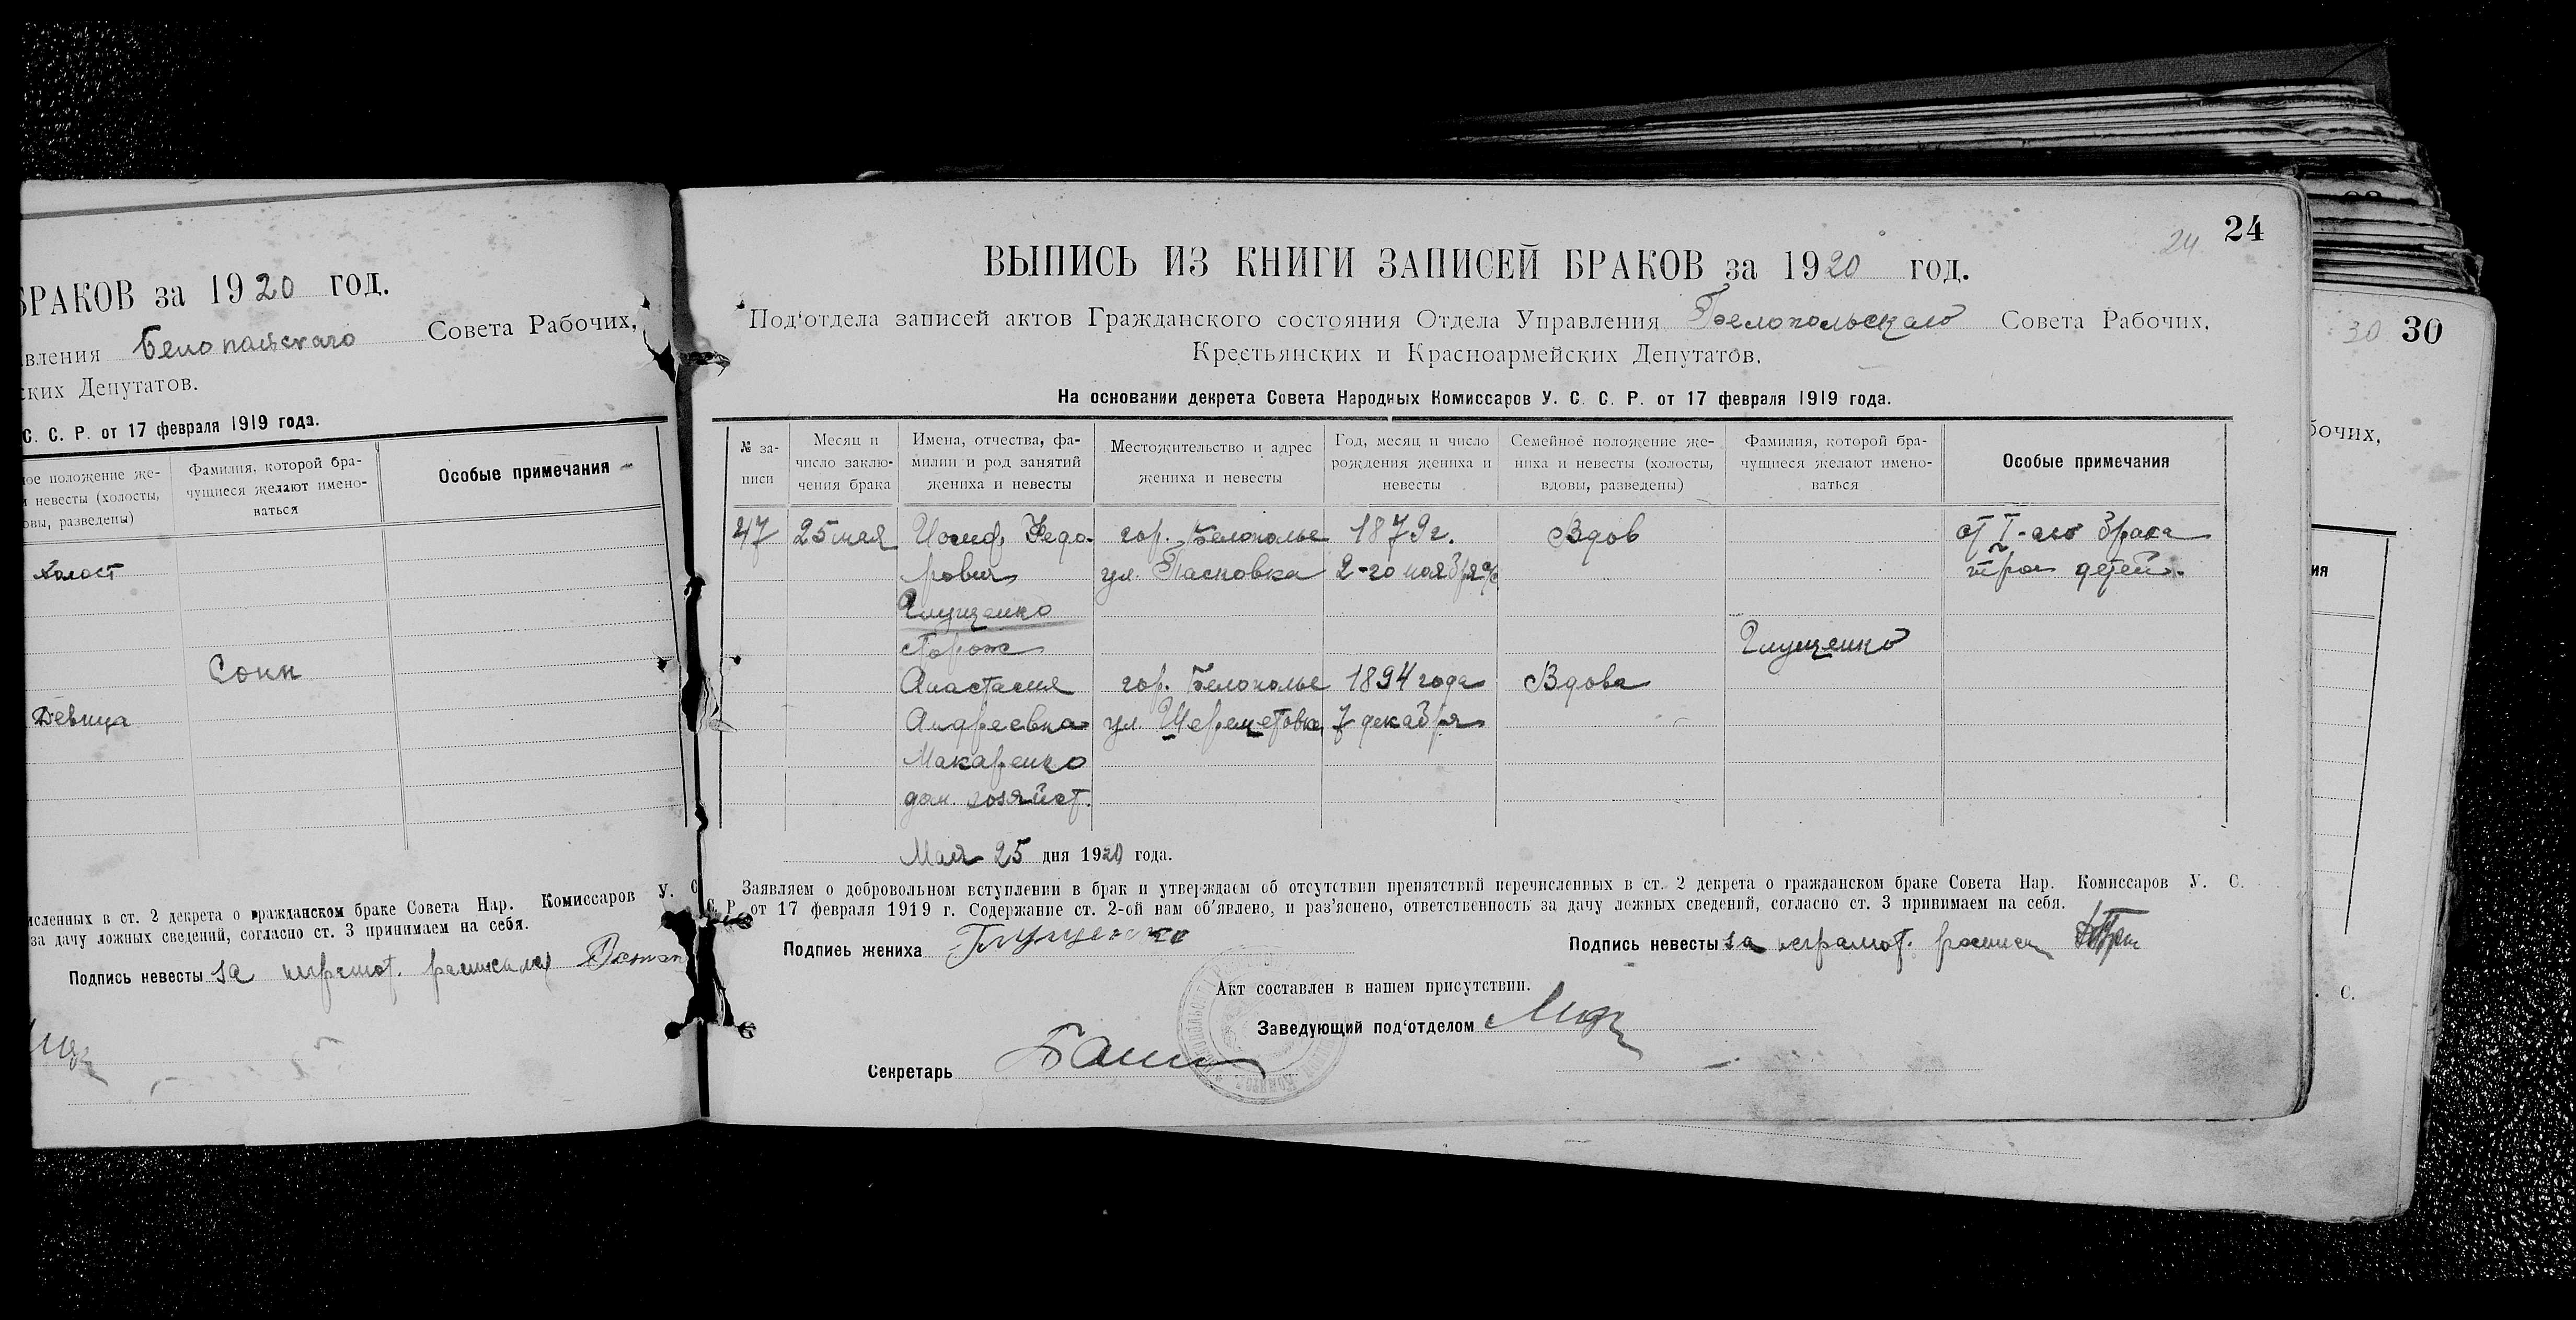 БРАКОВ за 1920 год.
вления Белопольскаго Совета Рабочих,
ских Депутатов.
С. С. Р. от 17 февраля 1919 года.
ое положение же-
и невесты (холосты,
овы, разведены)
Фамилия, которой бра-
чущиеся желают имено-
ваться
Особые примечания
Холост
Сокк
Девица
исленных в ст. 2 декрета о гражданском браке Совета Нар. Комиссаров У. С
за дачу ложных сведений, согласно ст. 3 принимаем на себя.
Подпись невесты за неграмот.
24
24
ВЫПИСЬ ИЗ КНИГИ ЗАПИСЕЙ БРАКОВ за 1920 год.
Под‘отдела записей актов Гражданского состояния Отдела Управления Белопольскаго Совета Рабочих,
Крестьянских и Красноармейских Депутатов.
На основании декрета Совета Народных Комиссаров У. С. С. Р. от 17 февраля 1919 года.
№ за-
писи
Месяц и
число заклю-
чения брака
Имена, отчества, фа-
милии и род занятий
жениха и невесты
Местожительство и адрес
жениха и невесты
Год, месяц и число
рождения жениха и
невесты
Семейное положение же-
ниха и невесты (холосты,
вдовы, разведены)
Фамилия, которой бра-
чущиеся желают имено-
ваться
Особые примечания
47 25 мая Иосиф Федо- гор. Белополье 1879г. Вдов от I-аго брака
рович ул. Пасковка 2-го ноября трое детей.
Глущенко
сторож Глущенко
Анастасия гор. Белополье 1894 года Вдова
Андреевна ул. Шереметовка 7 декабря
Макаренко
дом. хозяйст.
Мая 25 дня 1920 года.
Заявляем о добровольном вступлении в брак и утверждаем об отсутствии препятствий перечисленных в ст. 2 декрета о гражданском браке Совета Нар. Комиссаров У. С.
С. Р. от 17 февраля 1919 г. Содержание ст. 2-ой нам об‘явлено, и раз‘яснено, ответственность за дачу ложных сведений, согласно ст. 3 принимаем на себя.
Подпись жениха Глущенко
Подпись невесты за неграмот.
Акт составлен в нашем присутствии.
Заведующий под‘отделом
Секретарь
30 30
бочих,
ия
С.